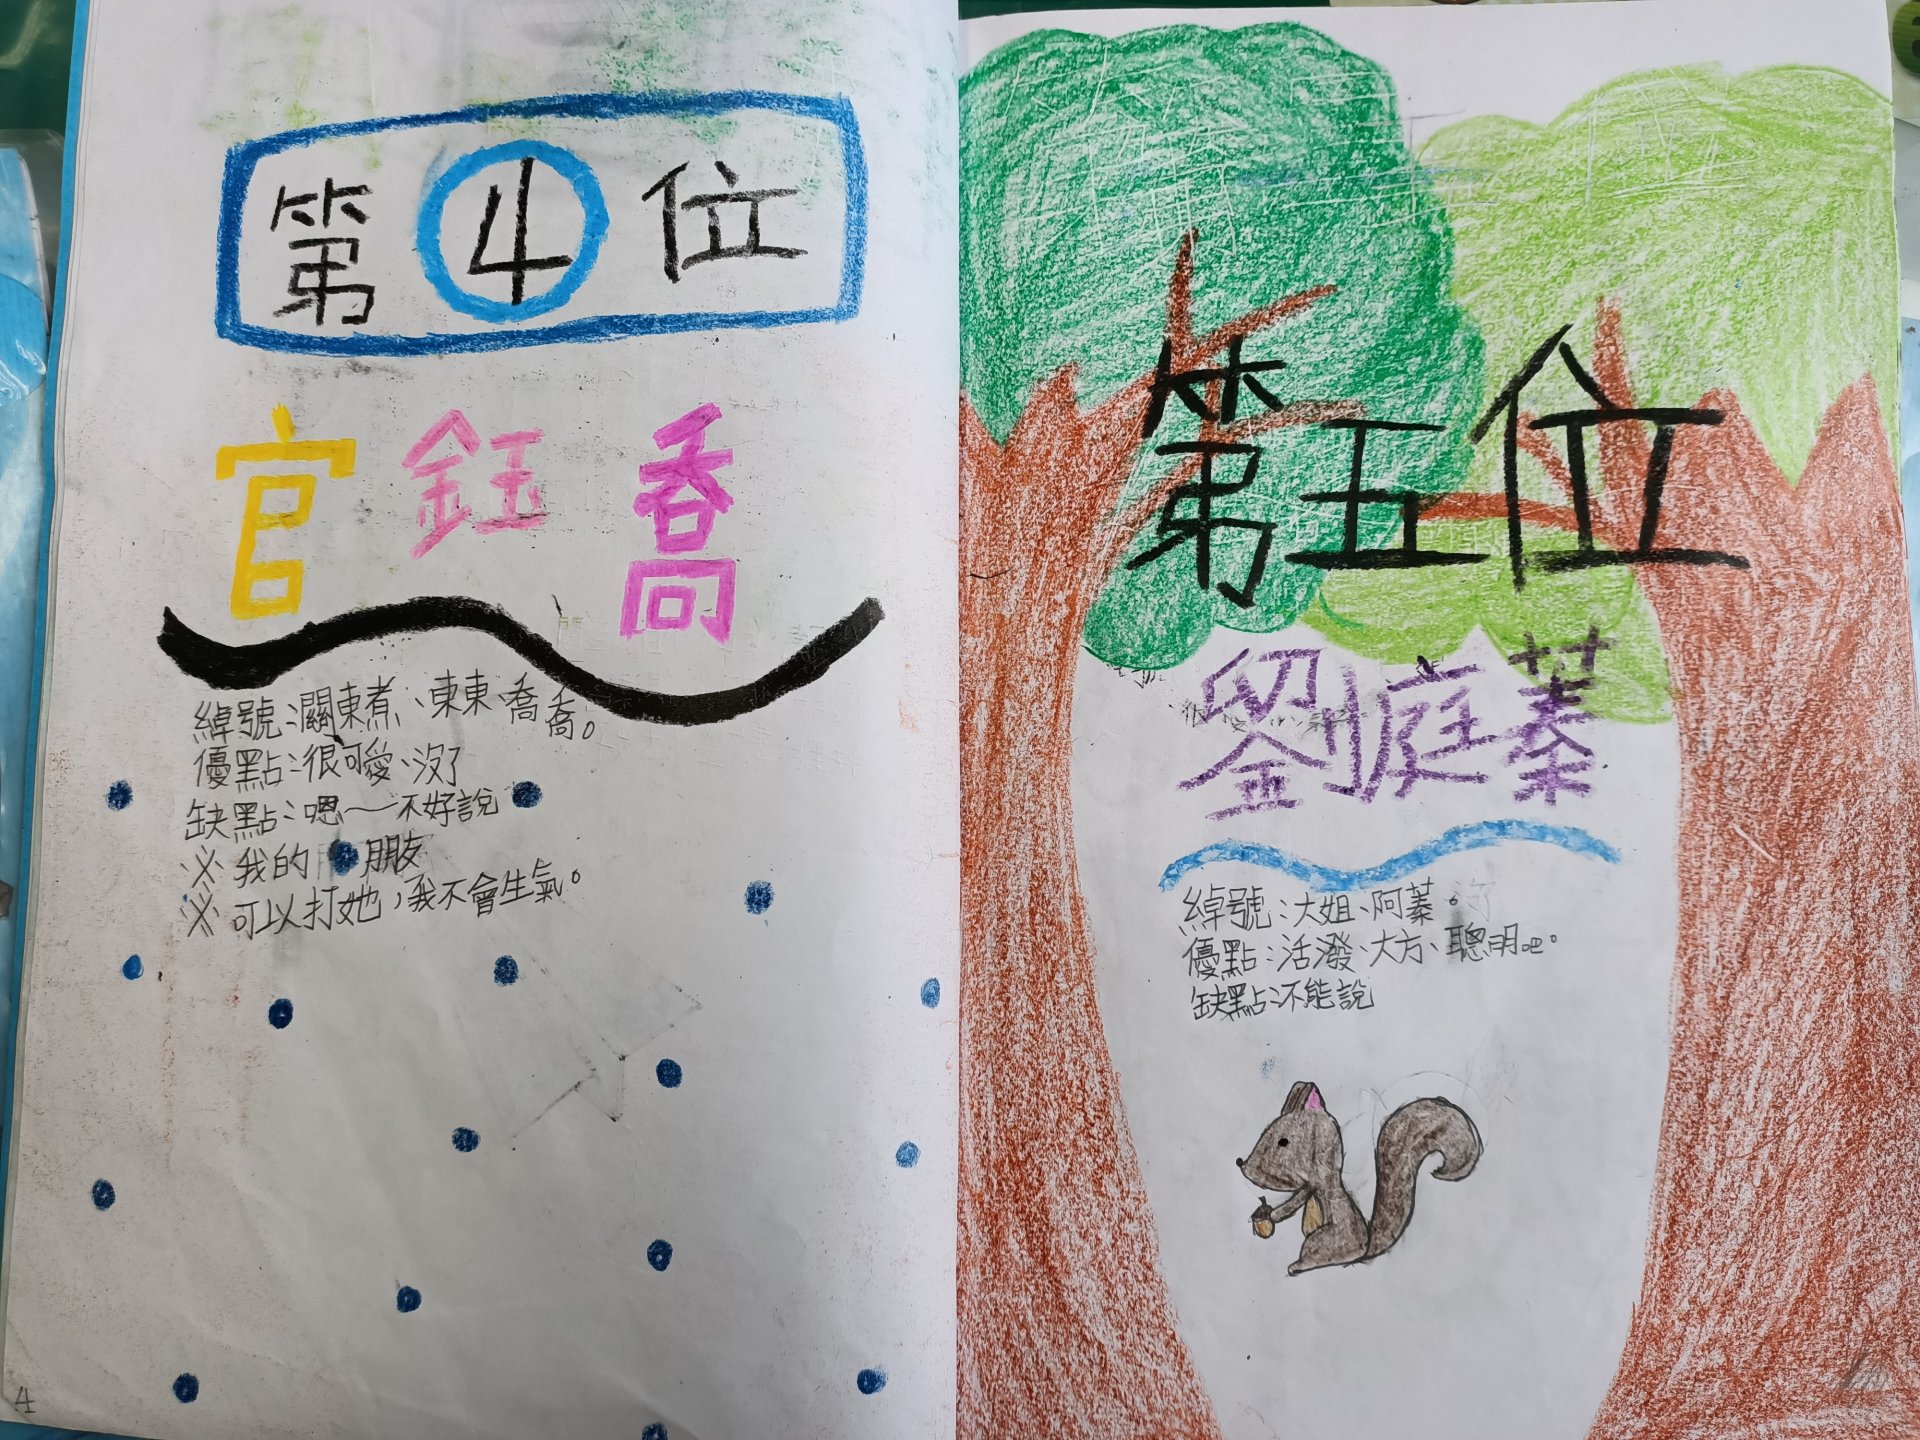 第4位
官鈺喬
綽號:關東煮、東東、喬喬。
優點:很可愛、沒了
缺點:嗯~不好說
※我的朋友
※可以打她,我不會生氣。
4
第五位
劉庭蓁
綽號:大姐、阿蓁。
優點:活潑、大方、聰明吧。
缺點:不能說